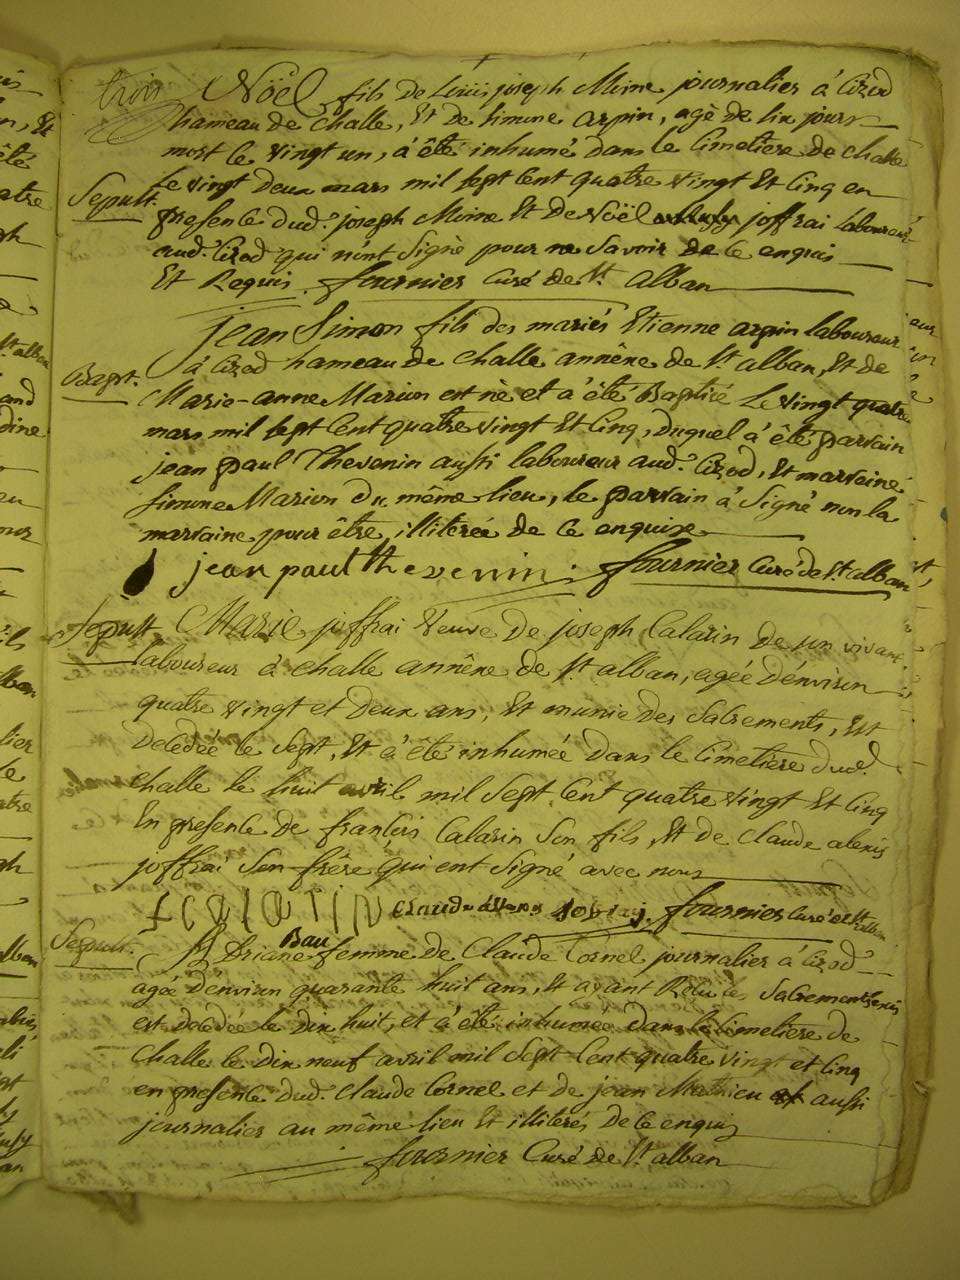 trois
Noël fils de Louis joseph Moine journalier à Cizod
hameau de Challe, Et de Simone arpin, agé de six jours
mort le vingt un, à été inhumé dans le Cimetiere de Challe
Sepult. Le vingt Deux mars mil sept Cent quatre vingt Et Cinq en
presence dud.t joseph Moine Et de Noël joffrai laboureur
aud.t Cizod qui n'ont Signé pour ne Savoir de Ce enquis
Et Requis. fournier Curé de S.t alban
jean Simon fils des mariés Etienne arpin laboureur
Bapt. à Cizod hameau de Challe annéxe de S.t alban, Et de
Marie-anne Marion est né et à été Baptisé Le vingt quatre
mars mil sept Cent quatre vingt Et Cinq, duquel à été parrain
jean paul Thevenin aussi laboureur aud.t Cizod, Et marraine
Simone Marion du même lieu, le parrain à Signé non la
marraine pour être illiterée de Ce enquise
jean paul thevenin. fournier Curé de S.t alban
Sepult Marie joffrai Veuve de joseph Calarin de son vivant
laboureur à Challe annéxe de S.t alban, agée d'environ
quatre vingt et Deux ans, Et munie des Sacrements, Est
Decedée le Sept, Et à été inhumée Dans le Cimetiere dud.t
Challe le huit avril mil Sept Cent quatre vingt Et Cinq
En presence de françois Calarin Son fils, Et de Claude alexis
joffrai Son frère qui ont Signé avec nous
f calatin Claude alexis fournier Curé de S.t alban
Sepult. Driane Bau femme de Claude Cornel journalier à Cizod
agée d'environ quarante huit ans, Et ayant Reçu les Sacrements
est decedée le Dix huit, et à été inhumée Dans le Cimetiere de
Challe le Dix neuf avril mil Sept Cent quatre vingt et Cinq
en presence dud.t Claude Cornel et de jean Mathieu aussi
journalier au même lieu Et illiterés de Ce enquis
fournier Curé de S.t alban